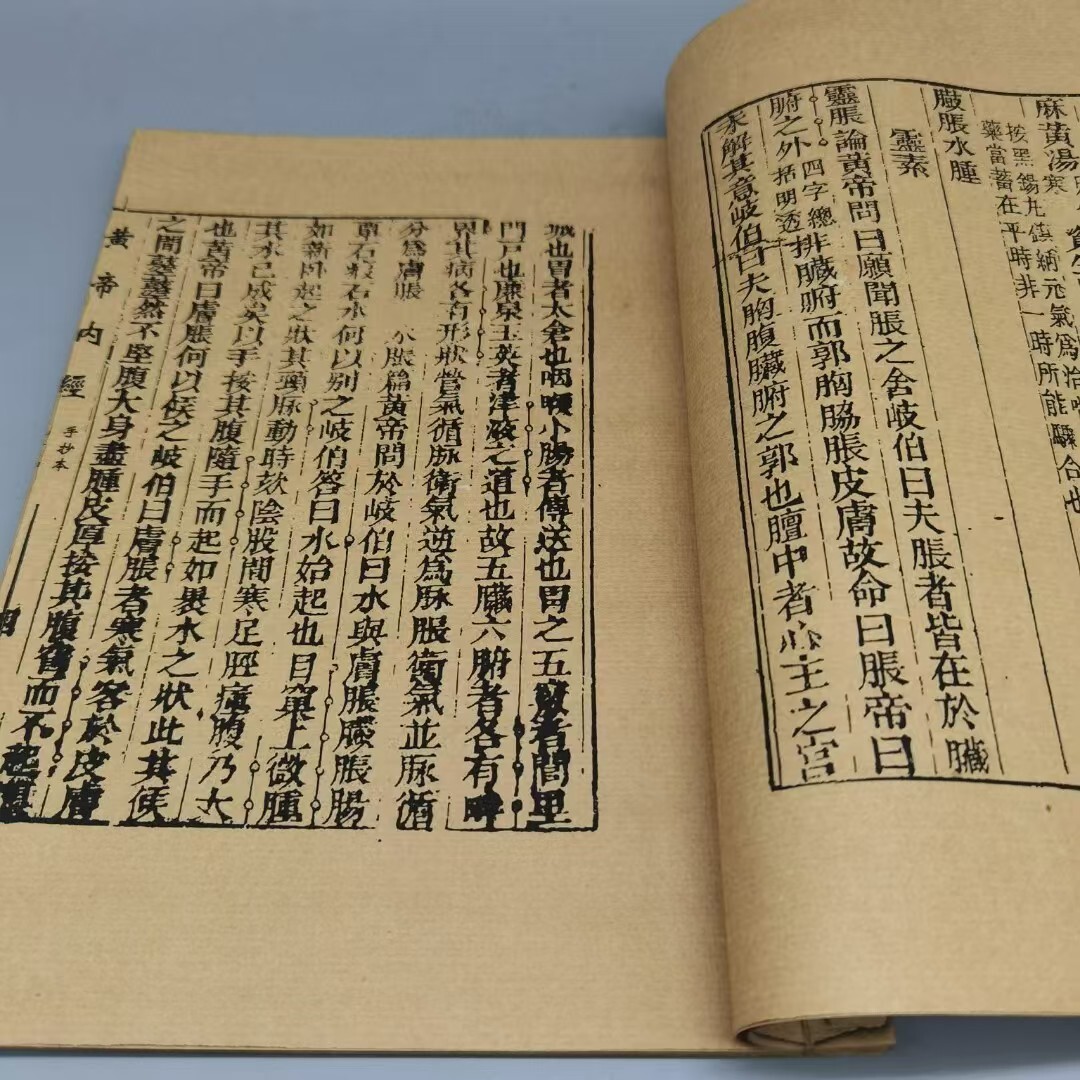 麻黄湯
按黑錫丸鎮納元氣爲治
藥當蓄在平時非一時所能驟合也
臌脹水腫
靈素
靈脹論黃帝問曰願聞脹之舍岐伯曰夫脹者皆在於臟
腑之外四字總括明透排臟腑而郭胸脇脹皮膚故命曰脹帝曰
未解其意岐伯曰夫胸腹臟腑之郭也膻中者心主之宮
城也胃者太倉也咽喉小腸者傳送也胃之五竅者閭里
門戸也廉泉玉英者津液之道也故五臟六腑者各有畔
界其病各有形狀營氣循脉衛氣逆爲脉脹衛氣並脉循
分爲膚脹 水脹篇黃帝問於岐伯曰水與膚脹臌脹腸
覃石瘕石水何以别之岐伯答曰水始起也目窠上微腫
如新卧起之狀其頸脉動時欬陰股間寒足脛瘇腹乃大
其水已成矣以手按其腹隨手而起如裹水之狀此其候
也黃帝曰膚脹何以候之岐伯曰膚脹者寒氣客於皮膚
之間然不堅腹大身盡腫皮厚按其腹窅而不起
黃帝内經 手抄本